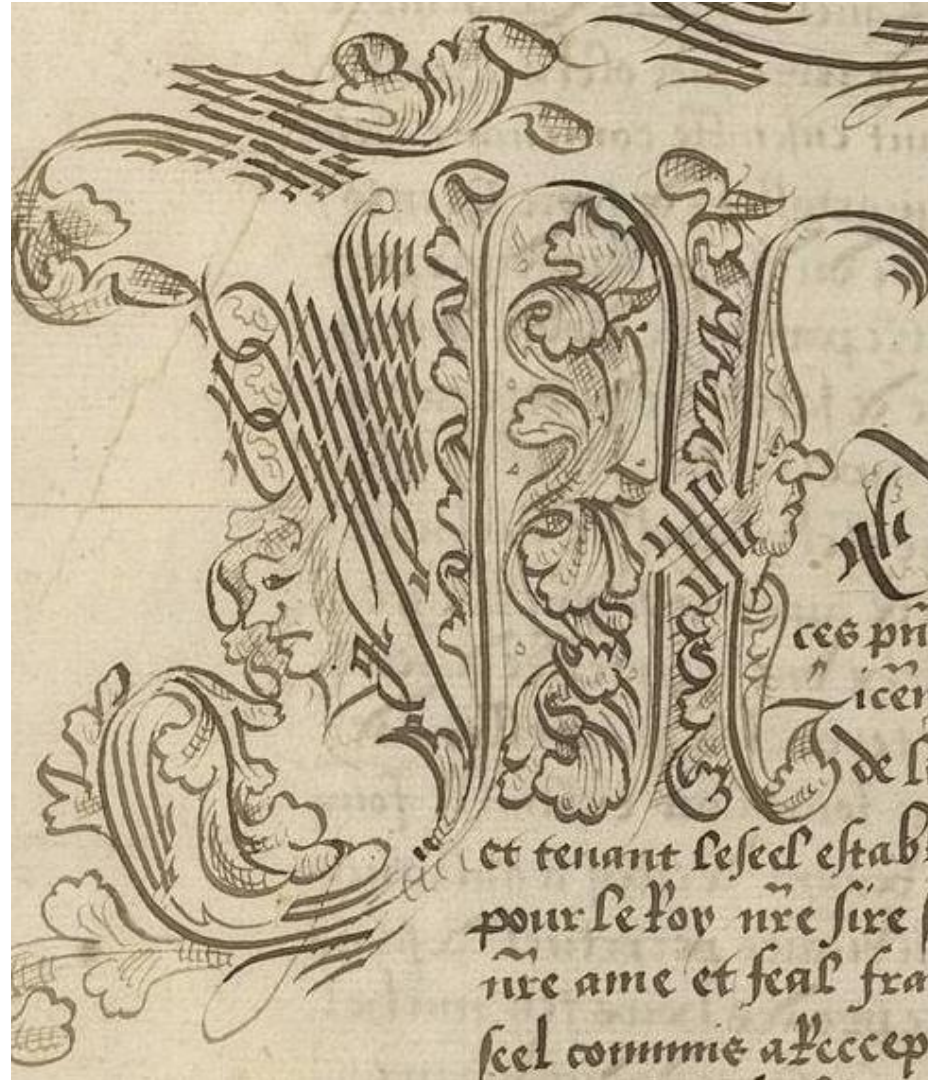 ces pñ
icen
de l
et tenant le seel estab
pour le Roy nr̃e sire s
nr̃e ame et feal fra
seel commis a Recep